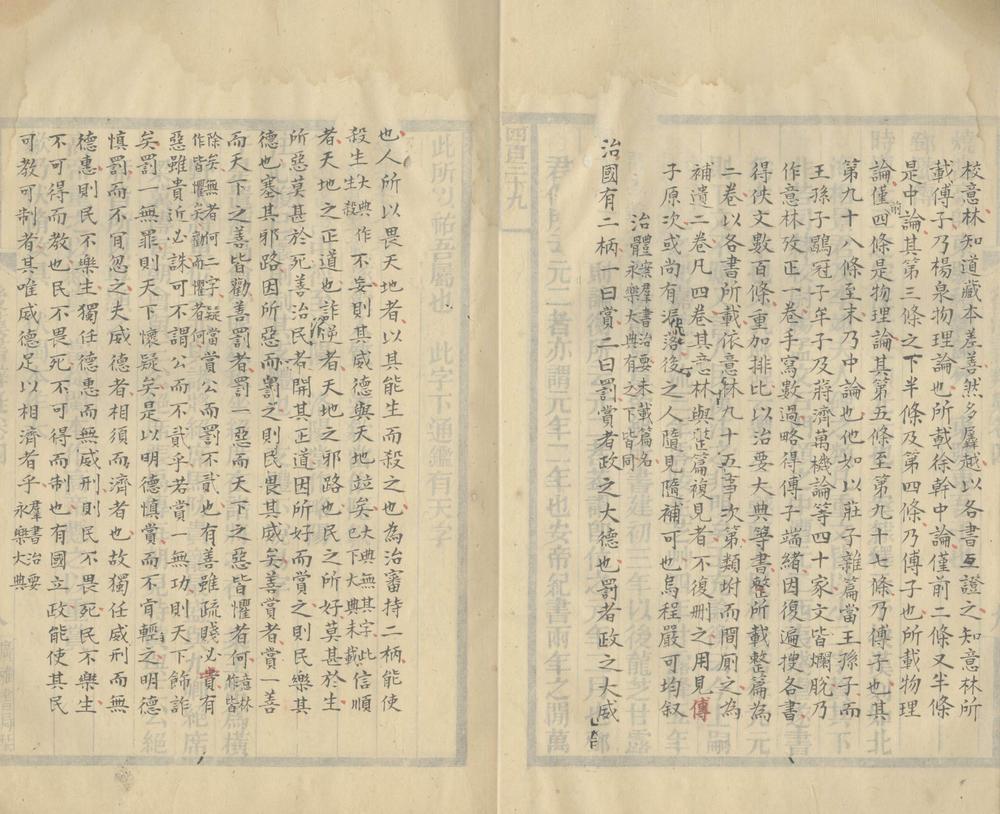 校意林知道藏本差善然多羼越以各書互證之知意林所
載傅子乃楊泉物理論也所載徐幹中論僅前二條又半條
是中論其第三條之下半條及第四條乃傅子也所載物理
論僅前四條是物理論其第五條至第九十七條乃傅子也其
第九十八條至末乃中論也他如以莊子雜篇當王孫子而
王孫子鶡冠子牟子及蔣濟萬機論等四十家文皆爛脫乃
作意林攷正一卷手寫數過略得傅子端緒因復遍搜各書
得佚文數百條重加排比以治要大典等書整所載整篇為
二卷以各書所載依意林九十五事次第類坿而間廁之為
補遺二卷凡四卷其意林與整篇複見者不復刪之用見傅
子原次或尚有漏落後之人隨見隨補可也烏程嚴可均叙
治體案羣書治要未載篇名
永樂大典有之下皆同
治國有二柄一曰賞二曰罰賞者政之大德也罰者政之大威
也人所以畏天地者以其能生而殺之也為治審持二柄能使
殺生大典作生殺不妄則其威德與天地竝矣大典無其字此
已下大典未載信順
者天地之正道也詐逆者天地之邪路也民之所好莫甚於生
所惡莫甚於死善治民者開其正道因所好而賞之則民樂其
德也塞其邪路因所惡而罰之則民畏其威矣善賞者賞一善
而天下之善皆勸善罰者罰一惡而天下之惡皆懼者何意林
作皆
除矣無者何二字疑當
作皆懼矣勸而懼者何賞公而罰不貳也有善雖疏賤必賞有
惡雖貴近必誅可不謂公而不貳乎若賞一無功則天下飾詐
矣罰一無罪則天下懷疑矣是以明德慎賞而不肯輕之明德
慎罰而不肎忽之夫威德者相須而濟者也故獨任威刑而無
德惠則民不樂生獨任德惠而無威刑則民不畏死民不樂生
不可得而教也民不畏死不可得而制也有國立政能使其民
可教可制者其唯威德足以相濟者乎羣書治要
永樂大典